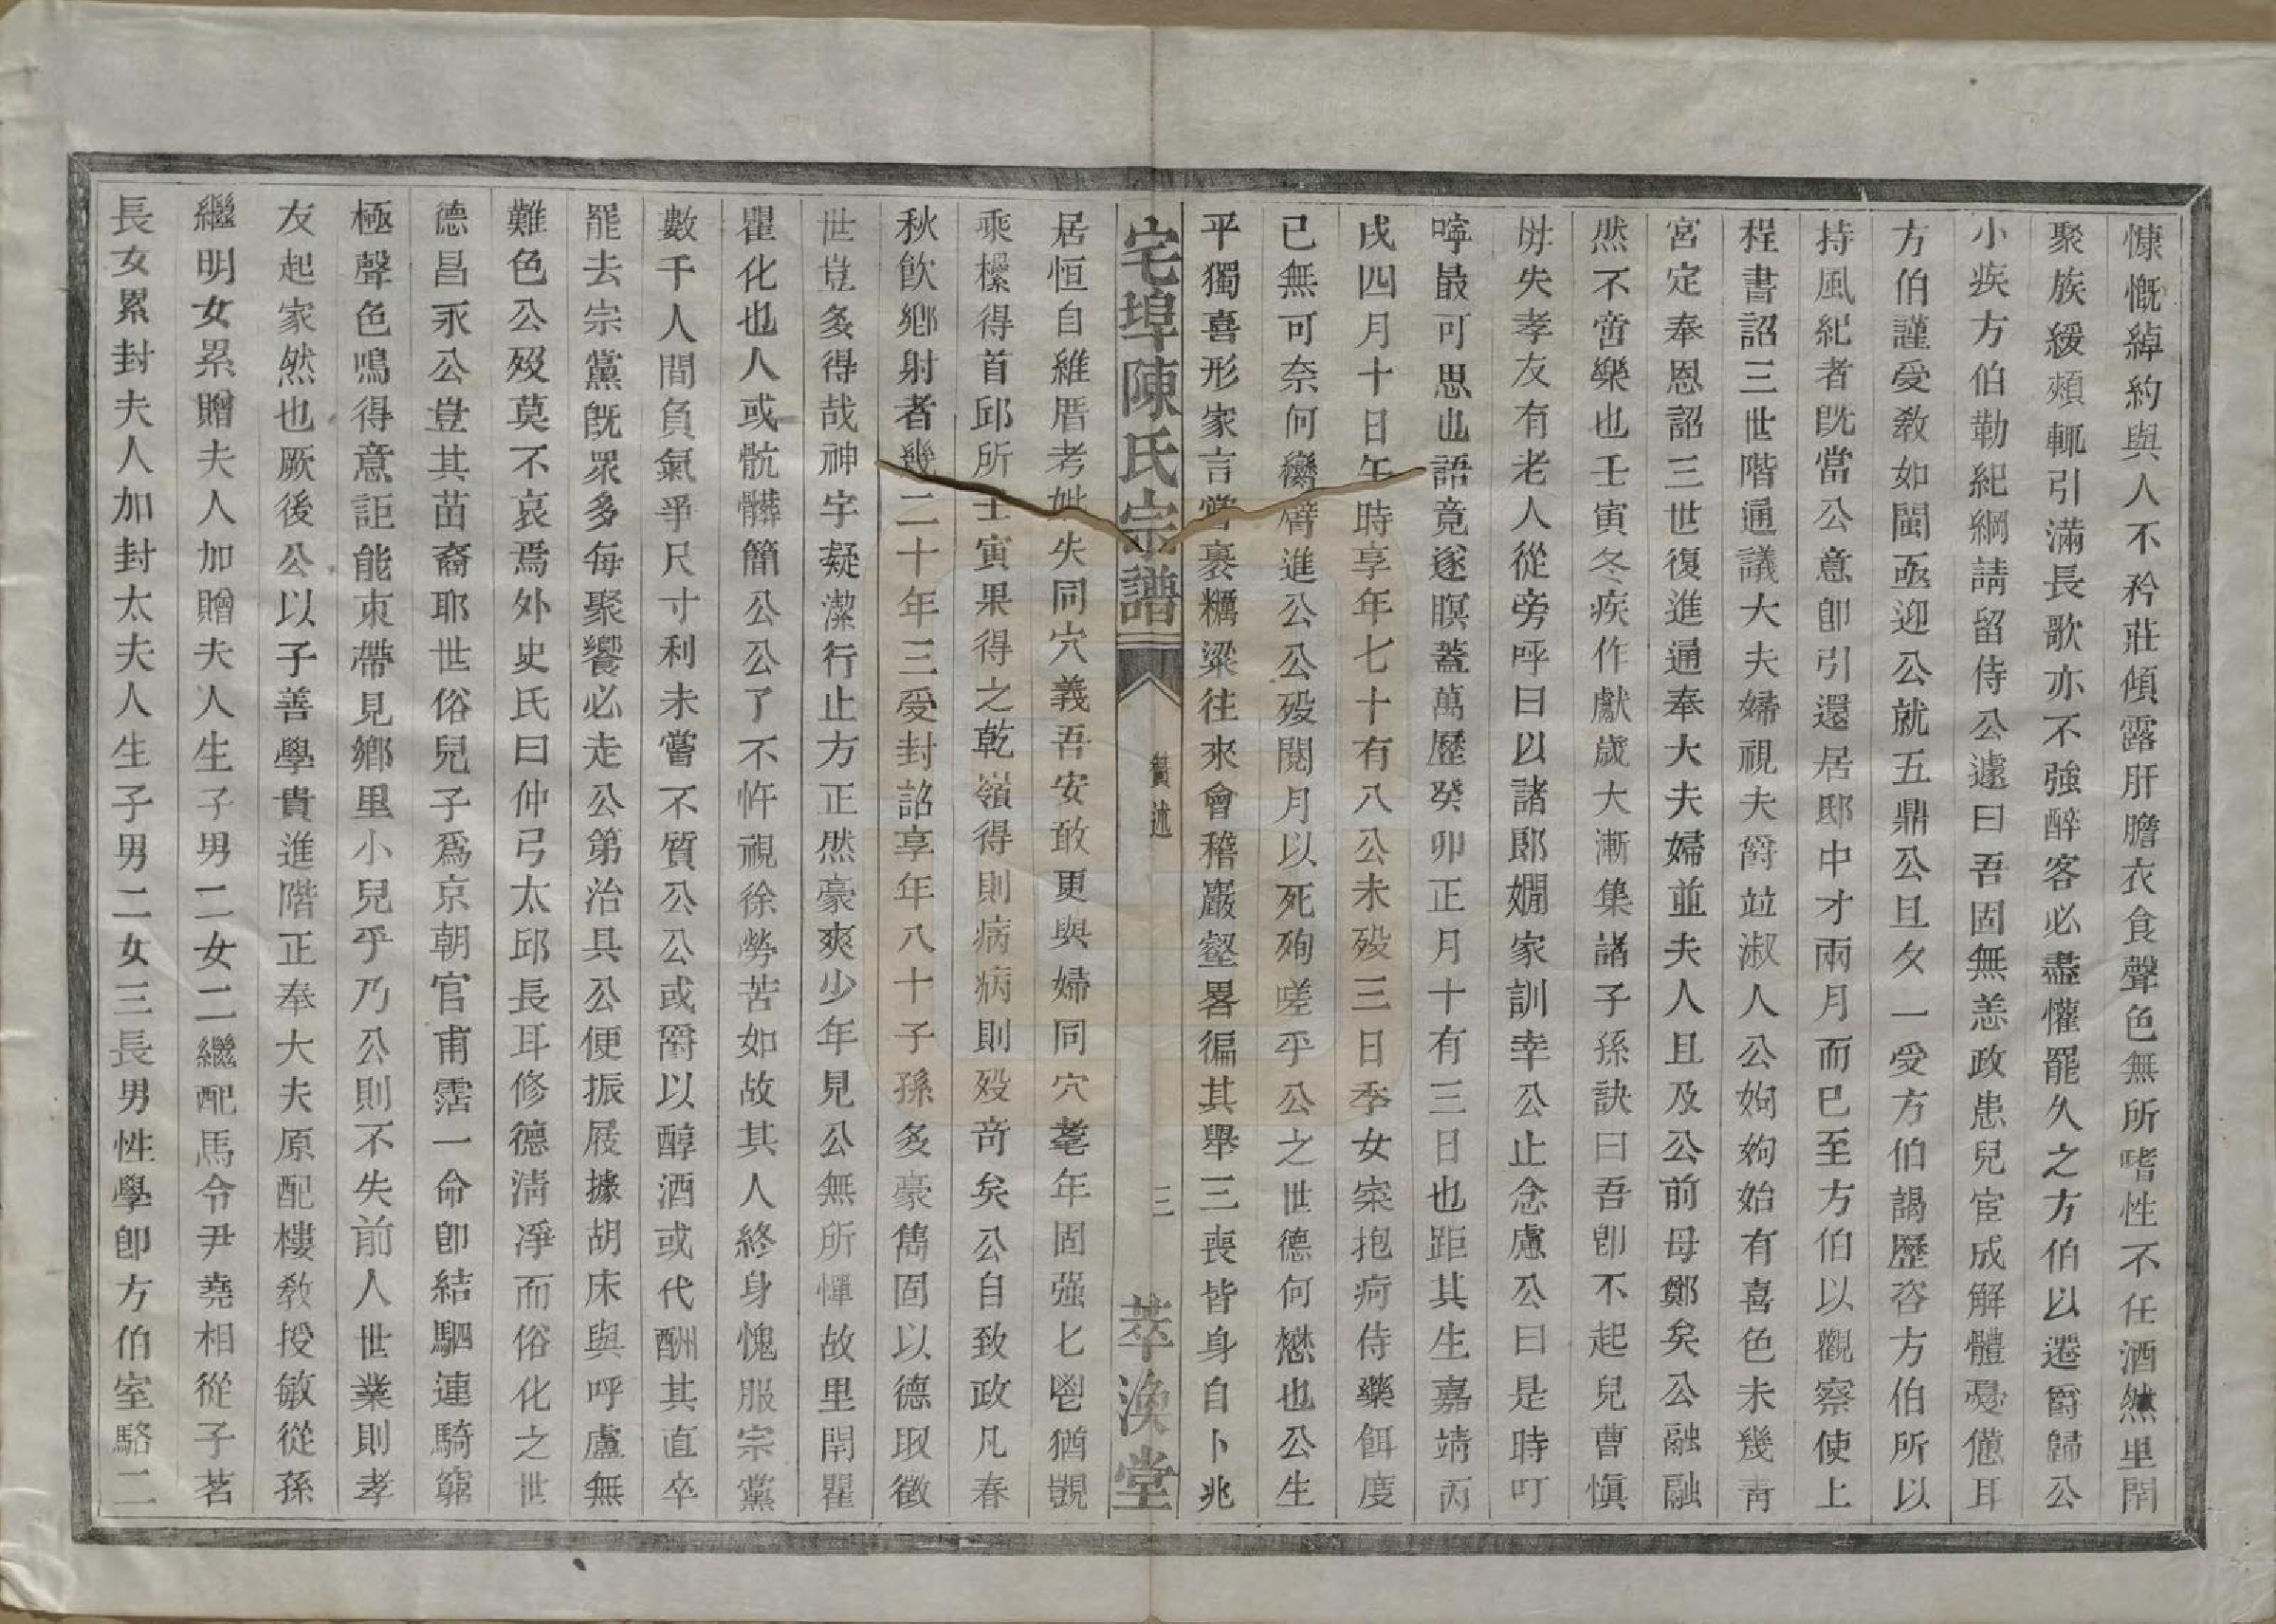 慷慨綽約與人不矜莊傾露肝膽衣食聲色無所嗜性不任酒然里閈
聚族緩頰輒引滿長歌亦不強醉客必盡懽罷久之方伯以遷爵歸公
小疾方伯勒紀綱請留侍公遽曰吾固無恙政患兒宦成解體憂憊耳
方伯謹受敎如閩亟迎公就五鼎公旦夕一受方伯謁歷咨方伯所以
持風紀者旣當公意卽引還居邸中才兩月而已至方伯以觀察使上
程書詔三世階通議大夫婦視夫爵竝淑人公姁姁始有喜色未幾靑
宮定奉恩詔三世復進通奉大夫婦並夫人且及公前母鄭矣公融融
然不啻樂也壬寅冬疾作獻歲大漸集諸子孫訣曰吾卽不起兒曹愼
毋失孝友有老人從旁呼曰以諸郎嫺家訓幸公止念慮公曰是時叮
嚀最可思也語竟遂瞑蓋萬歷癸卯正月十有三日也距其生嘉靖丙
戌四月十日午時享年七十有八公未殁三日季女寀抱疴侍藥餌度
已無可奈何臠臂進公公殁閱月以死殉嗟乎公之世德何懋也公生
平獨喜形家言嘗裹糲粱往來會稽巖壑畧徧其舉三喪皆身自卜兆
宅埠陳氏宗譜
贊述
三
萃渙堂
居恒自維厝考妣失同穴義吾安敢更與婦同穴耄年固强匕鬯猶覬
乘欙得首邱所壬寅果得之乾嶺得則病病則殁奇矣公自致政凡春
秋飮鄉射者幾二十年三受封詔享年八十子孫多豪雋固以德取徵
世豈多得哉神宇凝潔行止方正然豪爽少年見公無所憚故里閈瞿
瞿化也人或骯髒簡公公了不忤視徐勞苦如故其人終身愧服宗黨
數千人間負氣爭尺寸利未嘗不質公公或爵以醇酒或代酬其直卒
罷去宗黨旣眾多每聚饗必走公第治具公便振屐據胡床與呼盧無
難色公殁莫不哀焉外史氏曰仲弓太邱長耳修德淸淨而俗化之世
德昌永公豈其苗裔耶世俗兒子爲京朝官甫霑一命卽結駟連騎窮
極聲色鳴得意詎能束帶見鄉里小兒乎乃公則不失前人世業則孝
友起家然也厥後公以子善學貴進階正奉大夫原配樓敎授敏從孫
繼明女累贈夫人加贈夫人生子男二女二繼配馬令尹堯相從子茗
長女累封夫人加封太夫人生子男二女三長男性學卽方伯室駱二